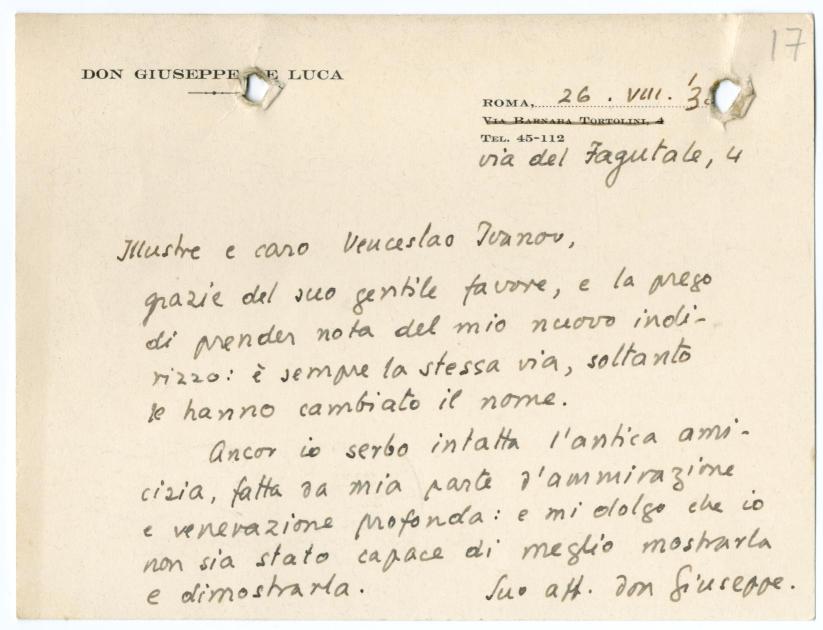 17
DON GIUSEPPE DE LUCA
ROMA, 26 . VIII . '3
VIA BARNABA TORTOLINI, 4
TEL. 45-112
via del Fagutale, 4
Illustre e caro Venceslao Ivanov,
grazie del suo gentile favore, e la prego
di prender nota del mio nuovo indi-
rizzo: è sempre la stessa via, soltanto
le hanno cambiato il nome.
Ancor io serbo intatta l'antica ami-
cizia, fatta da mia parte d'ammirazione
e venerazione profonda: e mi dolgo che io
non sia stato capace di meglio mostrarla
e dimostrarla. Suo aff. don Giuseppe.